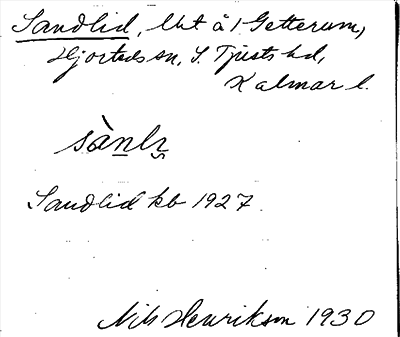 Sandlid, lht å 1 Getterum,
Hjorteds sn, S. Tjusts hd,
Kalmar l.
sànlı̨
Sandlid kb 1927.
Nils Henrikson 1930